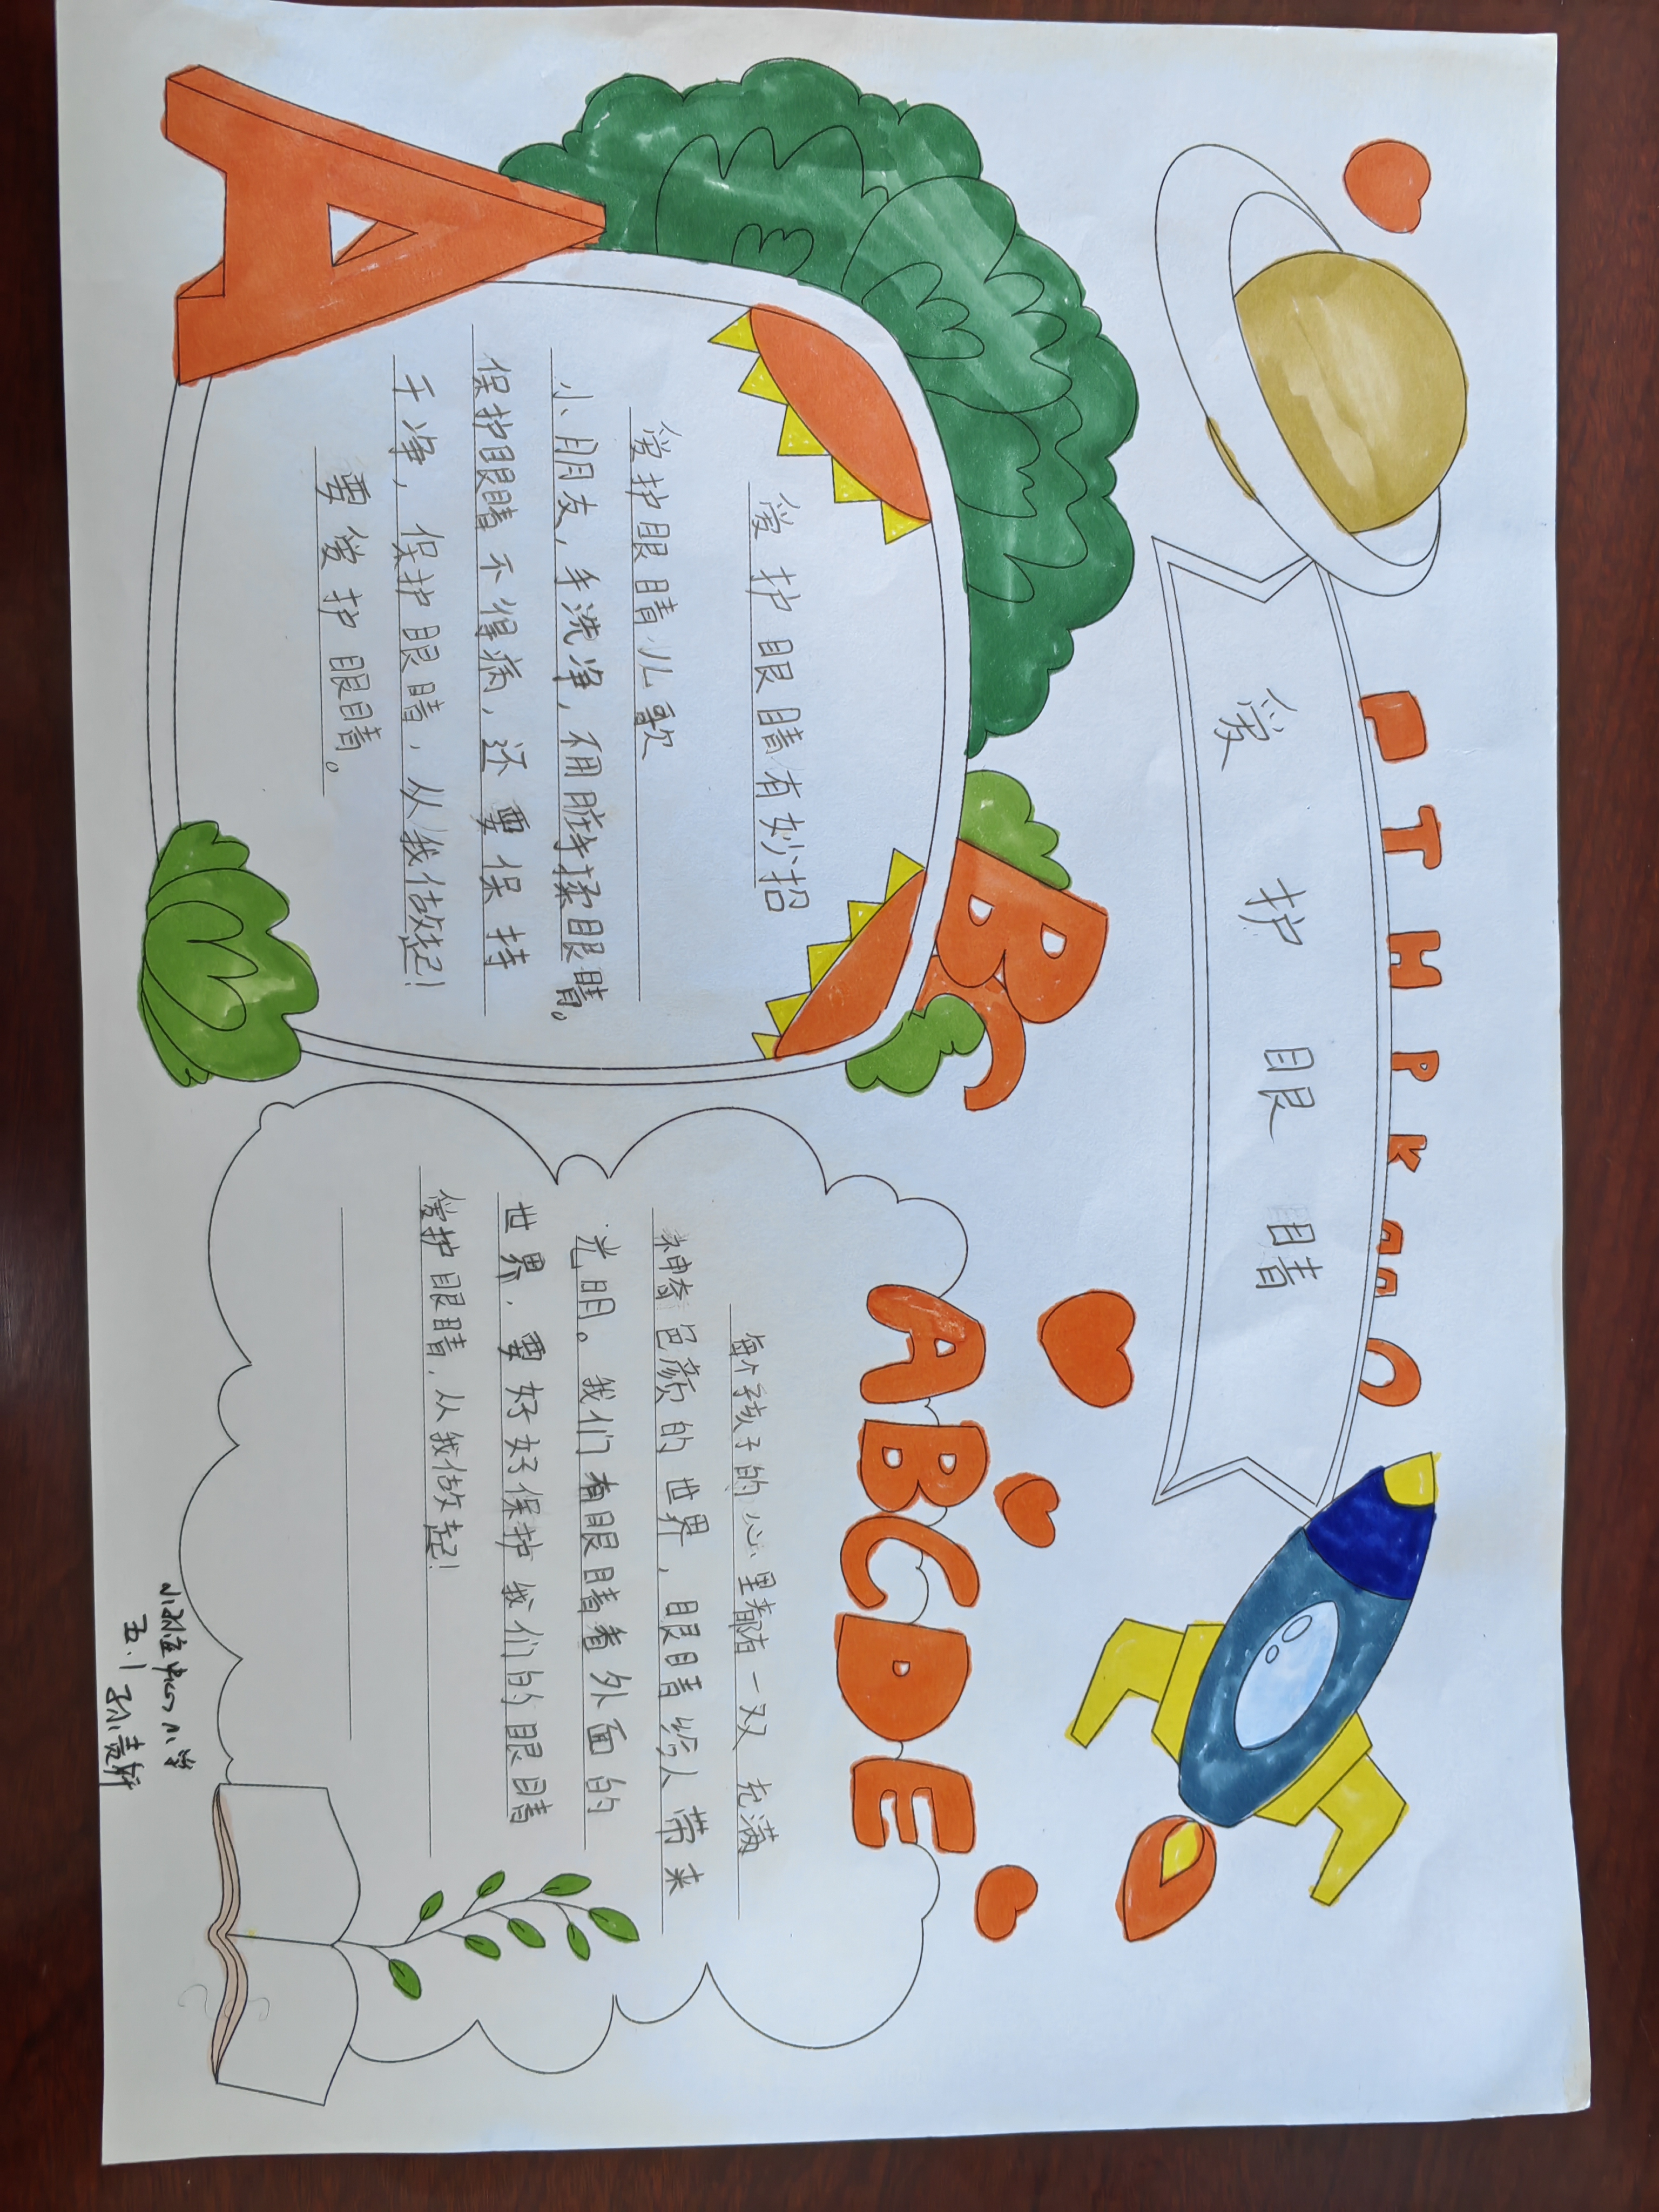 T H P K
爱护眼睛
A
BC
爱护眼睛有妙招
爱护眼睛儿歌
小朋友，手洗净，不用脏手揉眼睛。
保护眼睛不得病，还要保持
干净，保护眼睛，从我做起！
要爱护眼睛。
ABCDE
每个孩子的心里都有一双 充满
神奇色颜的世界，眼睛给人带来
光明。我们有眼睛看外面的
世界，要好好保护我们的眼睛
爱护眼睛，从我做起！
中心小学
五.1